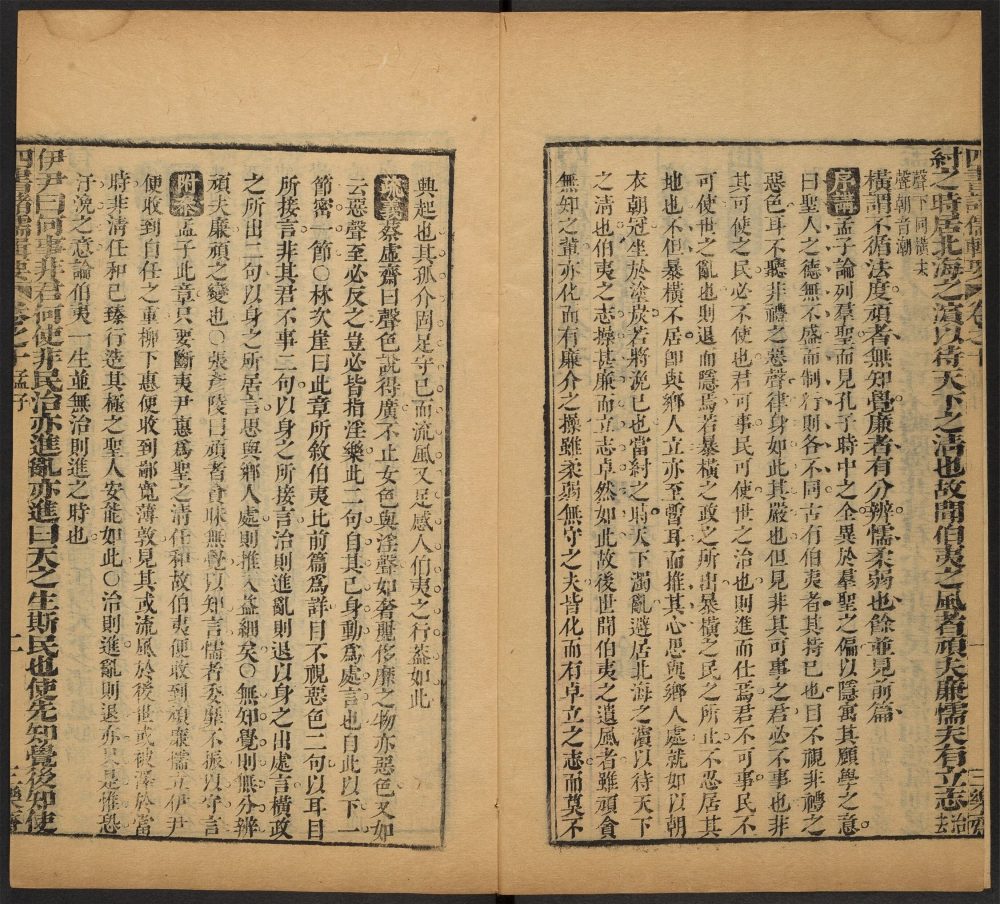 四書諸儒輯要 卷之十 一 三樂齋
紂之時居北海之濱以待天下之清也故聞伯夷之風者頑夫廉懦夫有立志治去
聲下同橫去
聲朝音潮
橫謂不循法度頑者無知覺廉者有分辨懦柔弱也餘並見前篇
序講孟子論列羣聖而見孔子時中之全異於羣聖之偏以隱寓其願學之意
曰聖人之德無不盛而制行則各不同古有伯夷者其持已也目不視非禮之
惡色耳不聽非禮之惡聲律身如此其嚴也但見非其可事之君必不事也非
其可使之民必不使也君可事民可使世之治也則進而仕焉君不可事民不
可使世之亂也則退而隱焉若暴橫之政之所出暴橫之民之所止不忍居其
地也不但暴橫不居卽與鄉人立亦至暫耳而推其心思與鄉人處就如以朝
衣朝冠坐於塗炭若將浼已也當紂之時天下濁亂避居北海之濱以待天下
之清也伯夷之志操甚廉而立志卓然如此故後世聞伯夷之遺風者雖頑貪
無知之輩亦化而有廉介之操雖柔弱無守之夫皆化而有卓立之志而莫不
典起也其孤介固足守已而流風又足感人伯夷之行蓋如此
蔡虛齋曰聲色說得廣不止女色與淫聲如奢麗侈靡之物亦惡色又如
云惡聲至必反之豈必皆指淫樂此二句自其已身動爲處言也自此以下一
節密一節○林次崖曰此章所敘伯夷比前篇爲詳目不視惡色二句以耳目
所接言非其君不事二句以身之所接言治則進亂則退以身之出處言橫政
之所出二句以身之所居言思與鄉人處則推入益細矣○無知覺則無分辨
頑夫廉頑之變也○張彥陵曰頑者貪昧無覺以知言懦者委靡不振以守言
附本孟子此章只要斷夷尹惠爲聖之清任和故伯夷便收到頑廉懦立伊尹
便收到自任之重柳下惠便收到鄙寬薄敦見其或流風於後世或被澤於當
時非清任和已臻行造其極之聖人安能如此○治則進亂則退亦只是惟恐
汙浼之意論伯夷一生並無治則進之時也
伊尹曰何事非君何使非民治亦進亂亦進曰天之生斯民也使先知覺後知使
四書諸儒輯要 卷之十 孟子 二 三樂齋